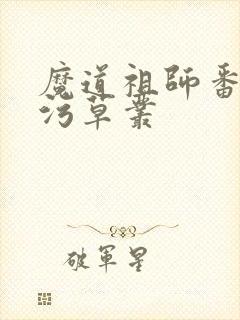 魔道祖師番
污草叢
破軍星